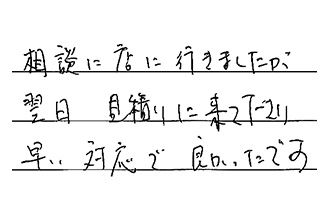 相談に店に行きましたが
翌日 見積りに来てくださり
早い 対応で 良かったです